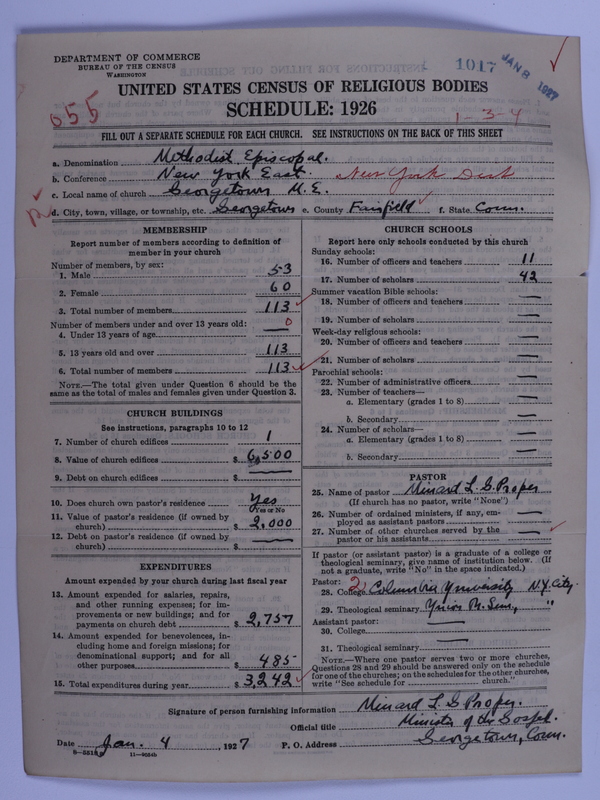 DEPARTMENT OF COMMERCE
BUREAU OF THE CENSUS
WASHINGTON
1017 JAN 8 1927
655
UNITED STATES CENSUS OF RELIGIOUS BODIES
SCHEDULE: 1926
1-3-4
FILL OUT A SEPARATE SCHEDULE FOR EACH CHURCH. SEE INSTRUCTIONS ON THE BACK OF THIS SHEET
a. Denomination Methodist Episcopal.
b. Conference New York East. New York Dist
c. Local name of church Georgetown M.E.
d. City, town, village, or township, etc. Georgetown e. County Fairfield f. State Conn.
MEMBERSHIP
Report number of members according to definition of
member in your church
Number of members, by sex:
1. Male 53
2. Female 60
3. Total number of members 113
Number of members under and over 13 years old:
4. Under 13 years of age — 0
5. 13 years old and over 113
6. Total number of members 113
NOTE.—The total given under Question 6 should be the
same as the total of males and females given under Question 3.
CHURCH BUILDINGS
See instructions, paragraphs 10 to 12
7. Number of church edifices 1
8. Value of church edifices $ 6,500
9. Debt on church edifices $ —
10. Does church own pastor's residence Yes
Yes or No
11. Value of pastor's residence (if owned by
church) $ 2,000
12. Debt on pastor's residence (if owned by
church) $ —
EXPENDITURES
Amount expended by your church during last fiscal year
13. Amount expended for salaries, repairs,
and other running expenses; for im-
provements or new buildings; and for
payments on church debt $ 2,757
14. Amount expended for benevolences, in-
cluding home and foreign missions; for
denominational support; and for all
other purposes $ 485
15. Total expenditures during year $ 3,242
CHURCH SCHOOLS
Report here only schools conducted by this church
Sunday schools:
16. Number of officers and teachers 11
17. Number of scholars 42
Summer vacation Bible schools:
18. Number of officers and teachers —
19. Number of scholars —
Week-day religious schools:
20. Number of officers and teachers —
21. Number of scholars —
Parochial schools:
22. Number of administrative officers —
23. Number of teachers—
a. Elementary (grades 1 to 8) —
b. Secondary —
24. Number of scholars—
a. Elementary (grades 1 to 8) —
b. Secondary —
PASTOR
25. Name of pastor Minard L. G. Proper
(If church has no pastor, write "None")
26. Number of ordained ministers, if any, em-
ployed as assistant pastors —
27. Number of other churches served by the
pastor or his assistants —
If pastor (or assistant pastor) is a graduate of a college or
theological seminary, give name of institution below. (If
not a graduate, write "No" in the space indicated.)
Pastor: 2
28. College Columbia University N.Y. City.
29. Theological seminary Union Th. Sem., "
Assistant pastor:
30. College —
31. Theological seminary —
NOTE.—Where one pastor serves two or more churches,
Questions 28 and 29 should be answered only on the schedule
for one of the churches; on the schedules for the other churches,
write "See schedule for church."
Signature of person furnishing information Minard L. G. Proper.
Official title Minister of the Gospel.
Date Jan. 4, 1927 P. O. Address Georgetown, Conn.
11—9024b